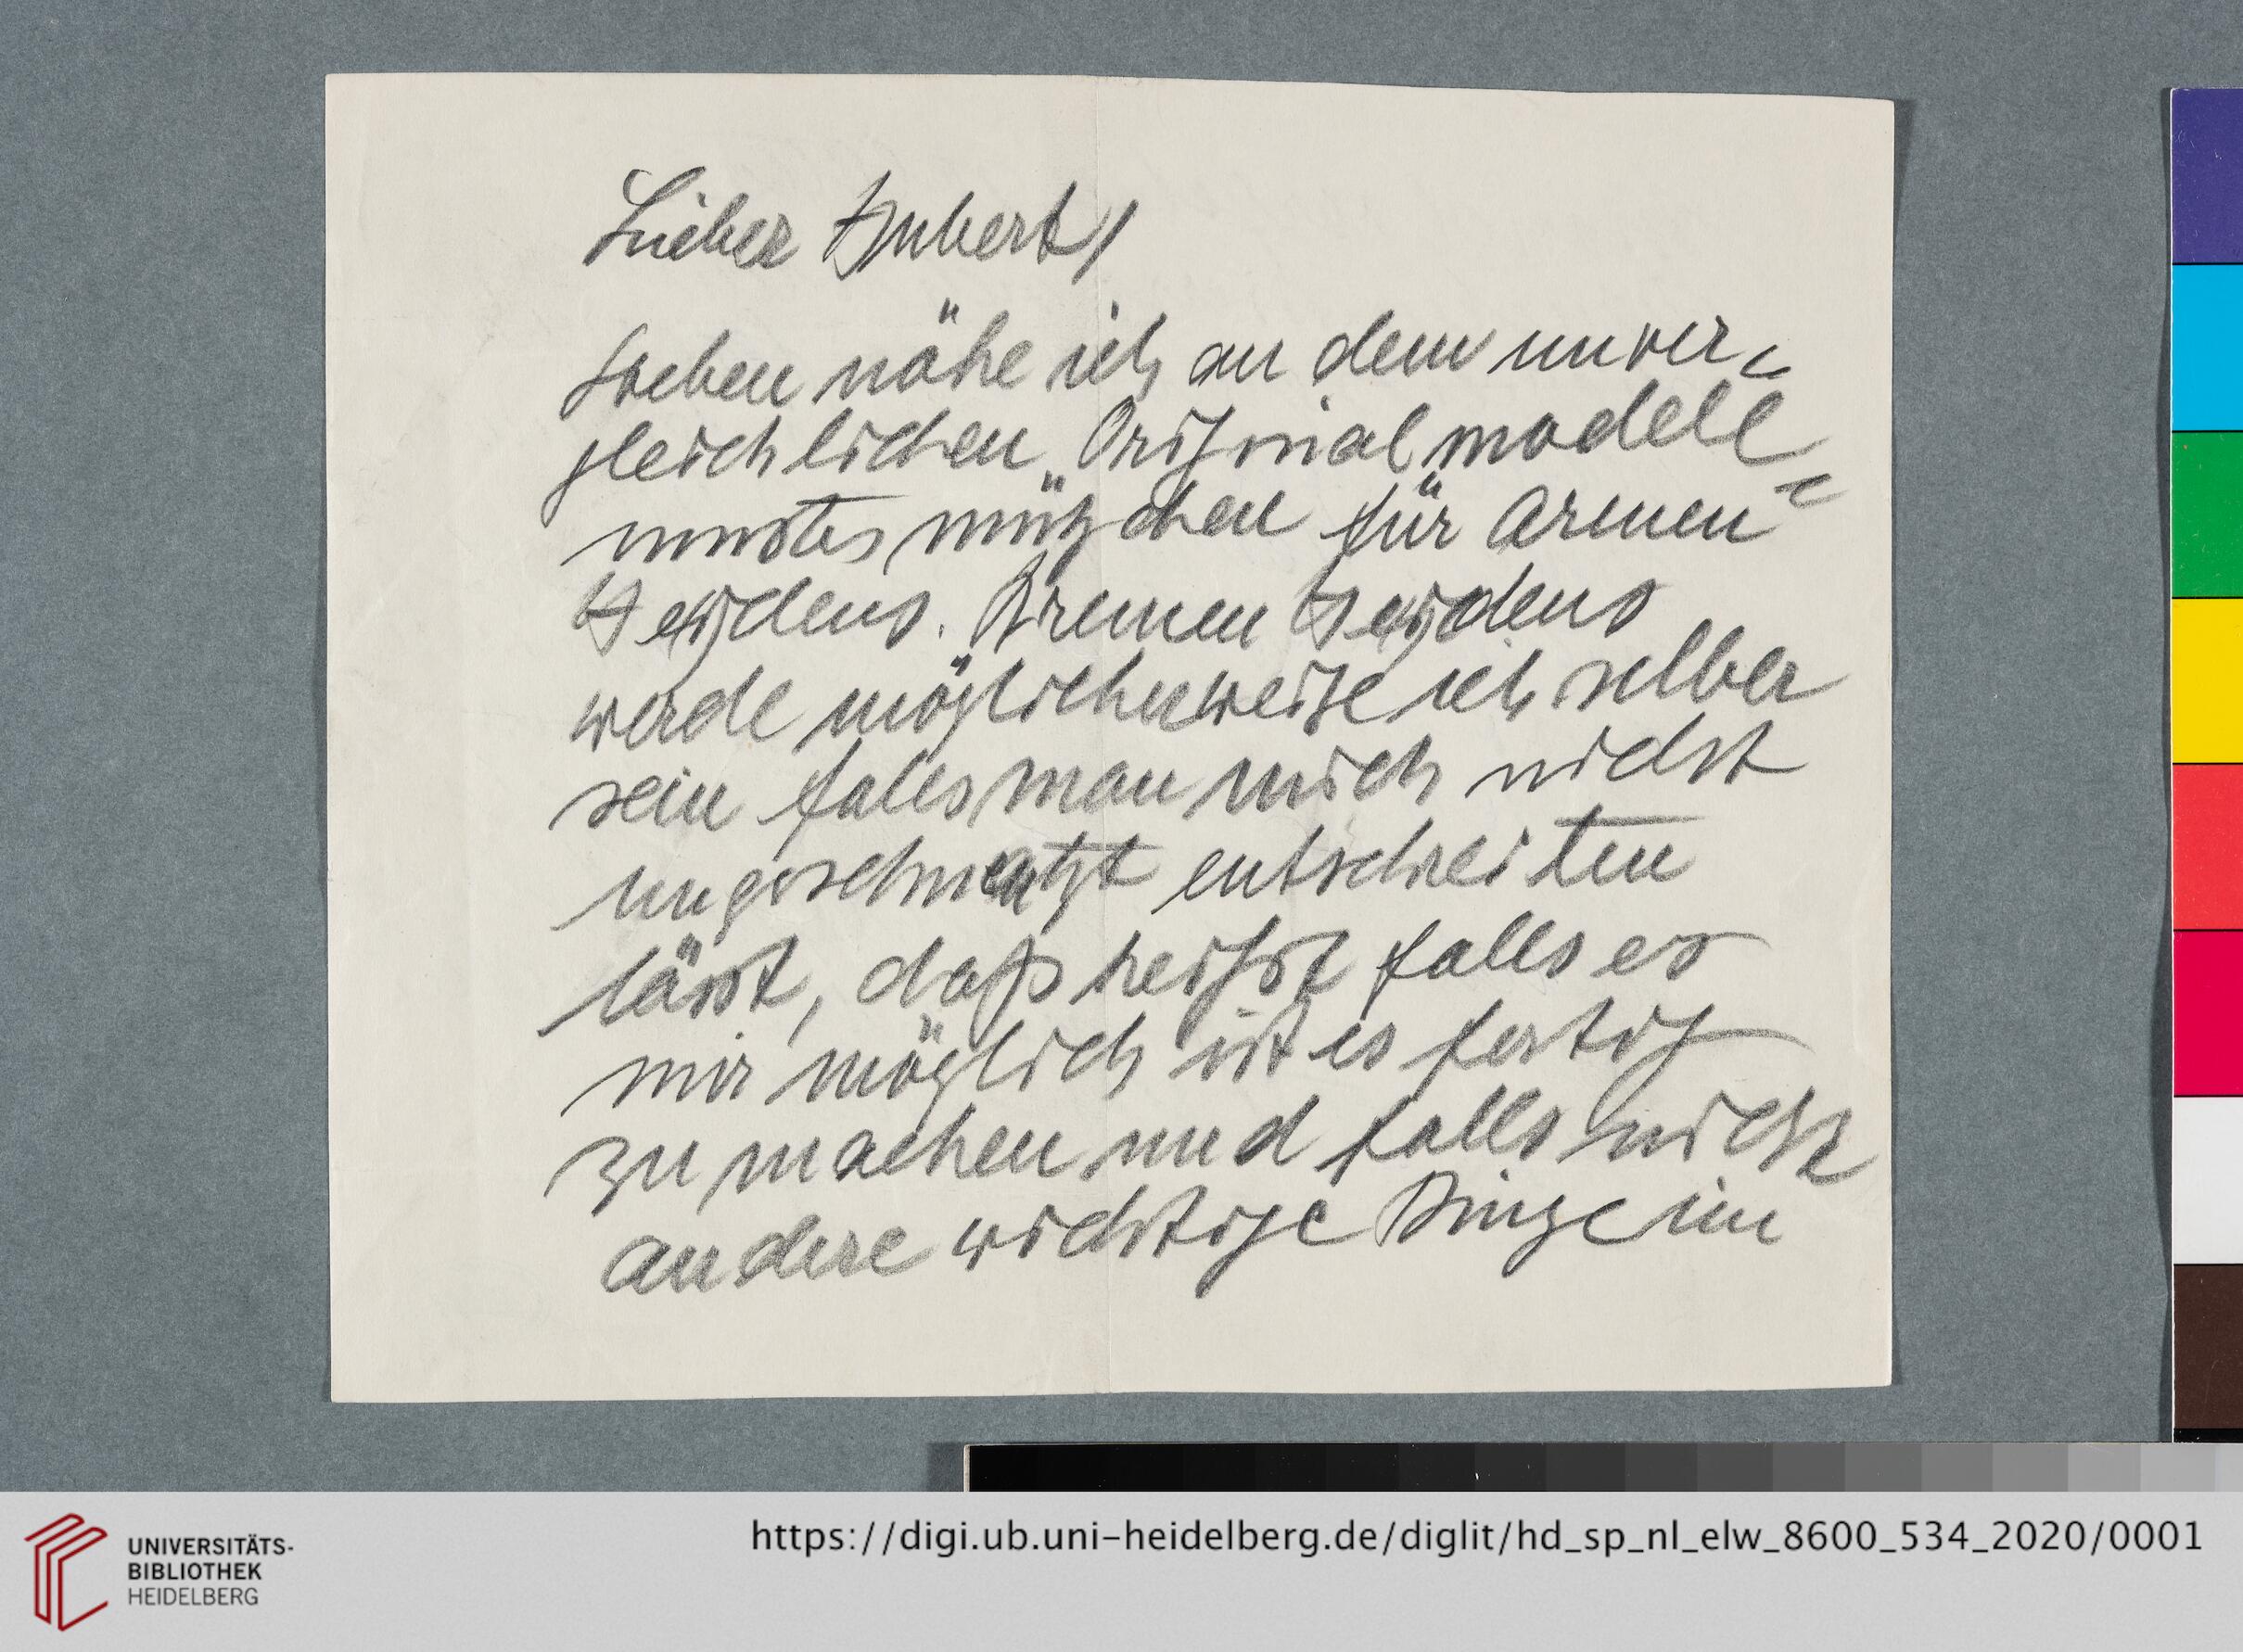 Lieber Hubert!
Soeben nähe ich an dem unver-
gleichlichen Originalmodell-
mützchen für Armen
Heydens. Armen Heydens
werde möglicherweise ich selber
sein falls man mich nicht
entschreiten
lässt, daß heisst falls es
mir möglich ist es fertig
zu machen und falls nicht
andere wichtige Dinge im
UNIVERSITÄTS-
BIBLIOTHEK
HEIDELBERG
https://digi.ub.uni-heidelberg.de/diglit/hd_sp_nl_elw_8600_534_2020/0001